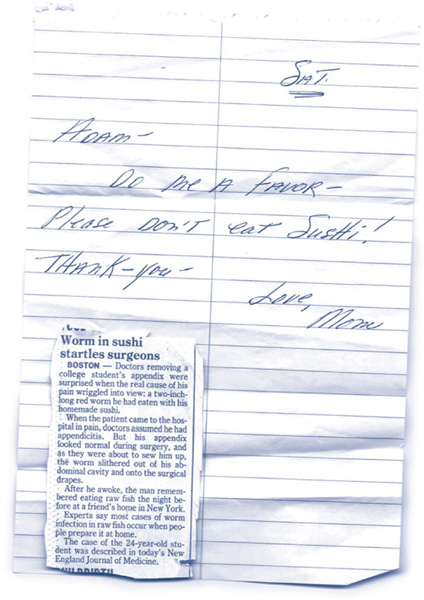 SAT.
ADAM-
DO ME A FAVOR-
Please DON'T eat SusHi!
THANK-you-
Love,
Mom
Worm in sushi
startles surgeons
BOSTON — Doctors removing a
college student's appendix were
surprised when the real cause of his
pain wriggled into view: a two-inch-
long red worm he had eaten with his
homemade sushi.
When the patient came to the hos-
pital in pain, doctors assumed he had
appendicitis. But his appendix
looked normal during surgery, and
as they were about to sew him up,
the worm slithered out of his ab-
dominal cavity and onto the surgical
drapes.
After he awoke, the man remem-
bered eating raw fish the night be-
fore at a friend's home in New York.
Experts say most cases of worm
infection in raw fish occur when peo-
ple prepare it at home.
The case of the 24-year-old stu-
dent was described in today's New
England Journal of Medicine.